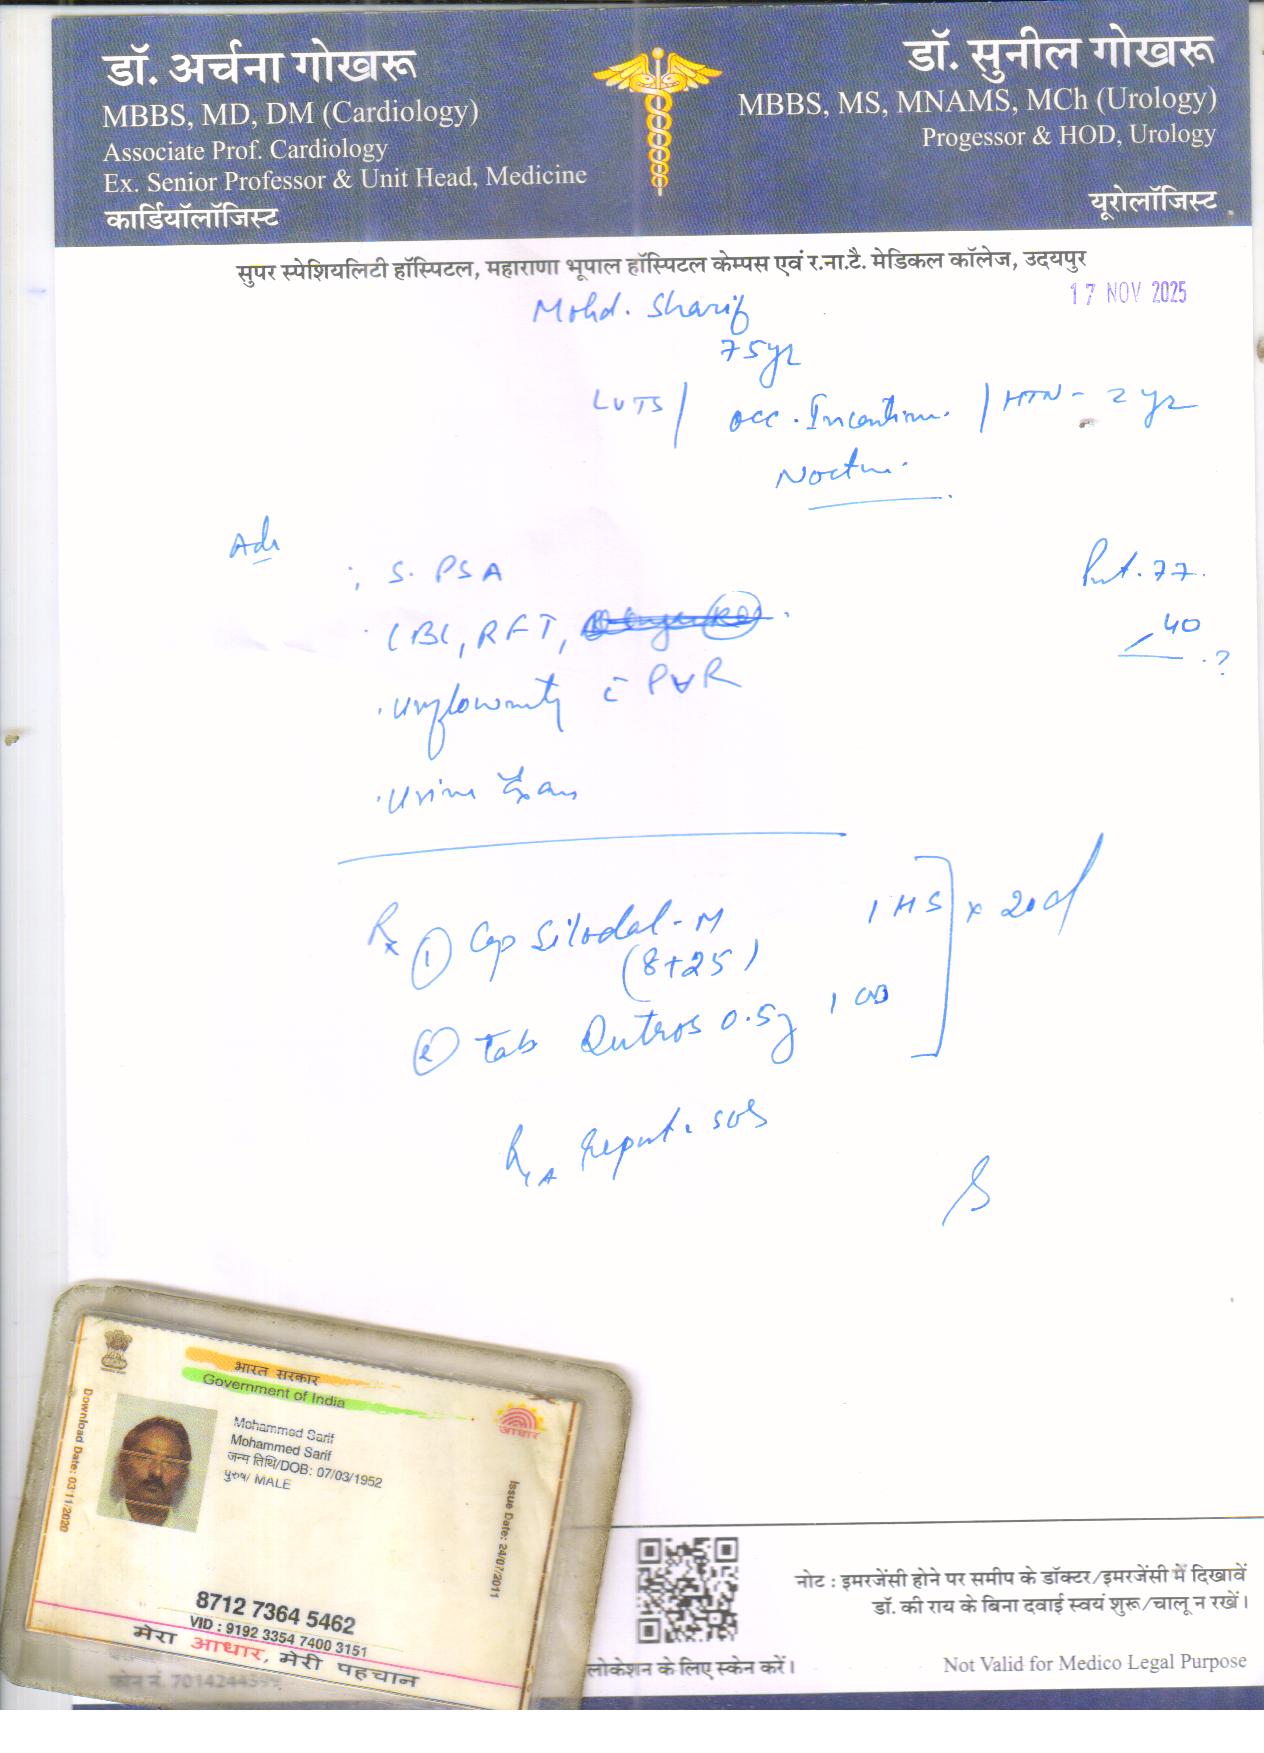 डॉ. अर्चना गोखरू
MBBS, MD, DM (Cardiology)
Associate Prof. Cardiology
Ex. Senior Professor & Unit Head, Medicine
कार्डियॉलॉजिस्ट
डॉ. सुनील गोखरू
MBBS, MS, MNAMS, MCh (Urology)
Progessor & HOD, Urology
यूरोलॉजिस्ट
सुपर स्पेशियलिटी हॉस्पिटल, महाराणा भूपाल हॉस्पिटल केम्पस एवं र.ना.टै. मेडिकल कॉलेज, उदयपुर
17 NOV 2025
Mohd. Sharif
75yr
LUTS / occ. / HTN - 2 yr
Adv
S. PSA
CBC, RFT,
Uroflowmetry c̄ PVR
Urine Exam
40
?
Rx ① Cap Silodal-M 1 HS
(8+25)
② Tab Dutros 0.5 1 OD
x 20d
report. SOS
भारत सरकार
Government of India
Mohammed Sarif
Mohammed Sarif
जन्म तिथि/DOB: 07/03/1952
पुरुष/ MALE
Download Date: 03/11/2020
Issue Date: 24/07/2011
आधार
8712 7364 5462
VID : 9192 3354 7400 3151
मेरा आधार, मेरी पहचान
नोट : इमरजेंसी होने पर समीप के डॉक्टर/इमरजेंसी में दिखावें
डॉ. की राय के बिना दवाई स्वयं शुरू/चालू न रखें।
लोकेशन के लिए स्केन करें।
Not Valid for Medico Legal Purpose